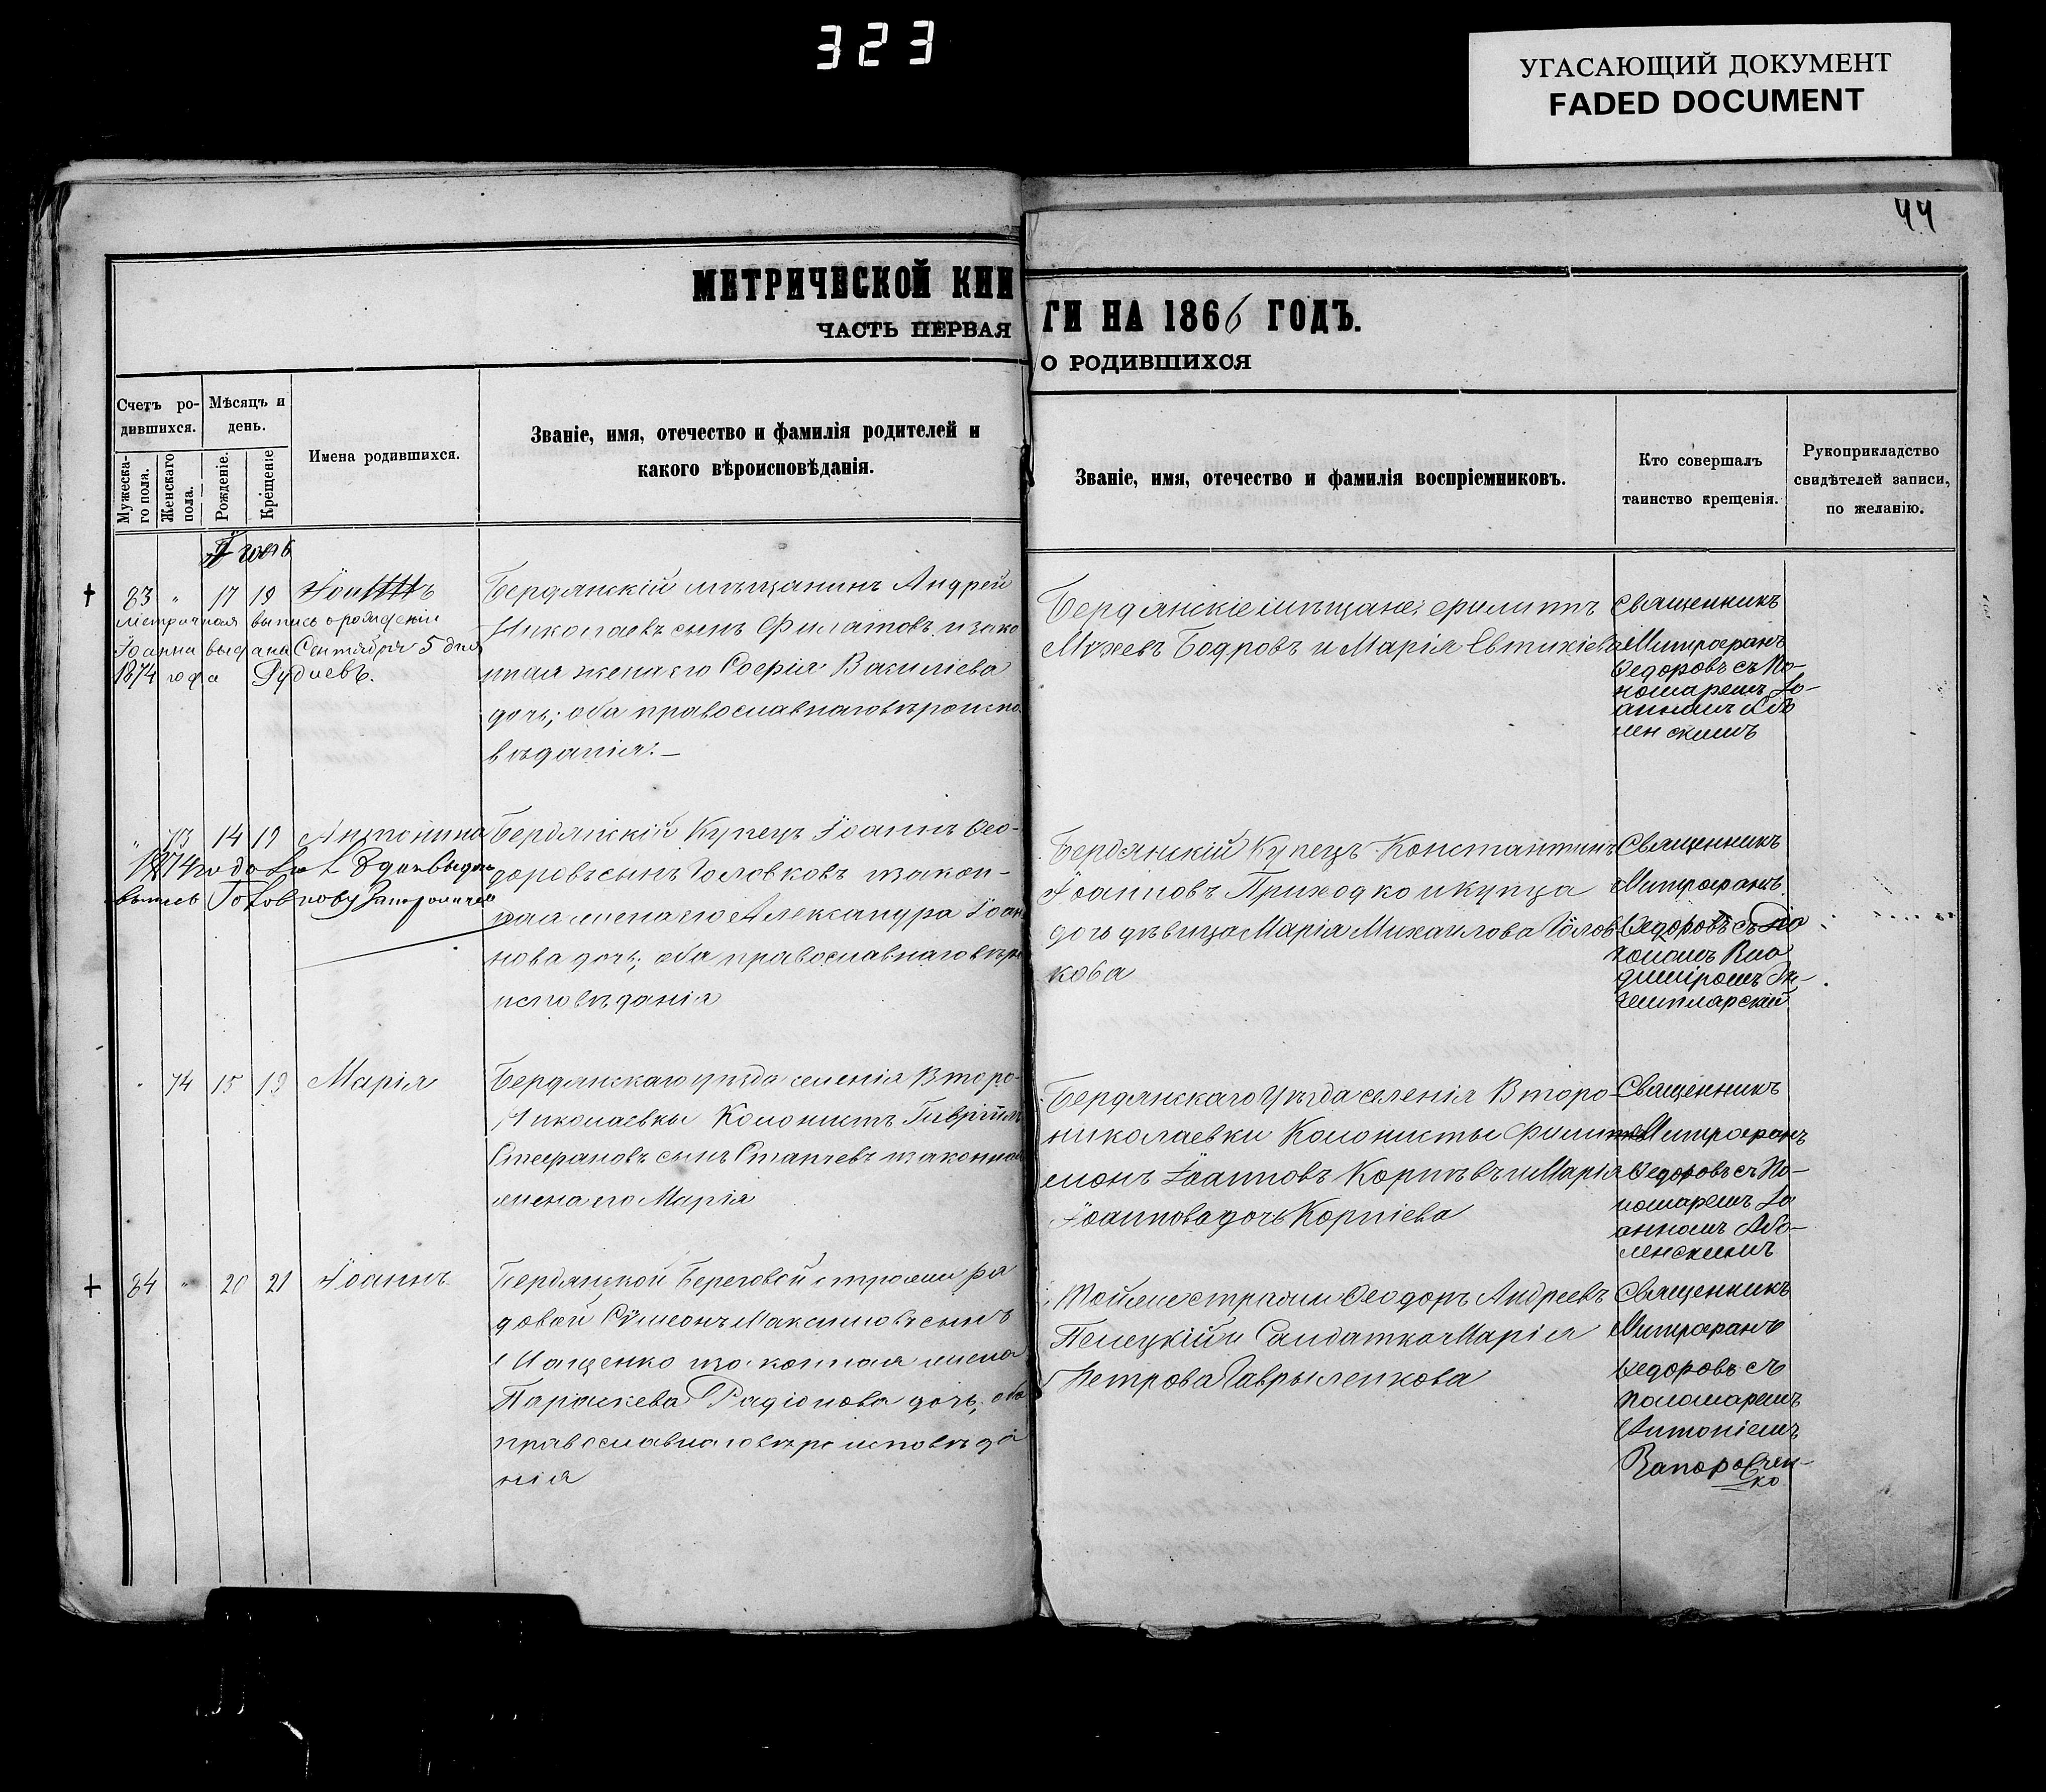 323
УГАСАЮЩИЙ ДОКУМЕНТ
FADED DOCUMENT
44
МЕТРИЧЕСКОЙ КНИ
ЧАСТЬ ПЕРВАЯ
ГИ НА 1866 ГОДЪ.
О РОДИВШИХСЯ
Счетъ ро-
дившихся.
Мужеска-
го пола.
Женскаго
пола.
Мѣсяцъ и
день.
Рожденіе.
Крещеніе
Имена родившихся.
Званіе, имя, отечество и фамилія родителей и
какого вѣроисповѣданія.
Званіе, имя, отечество и фамилія воспріемниковъ.
Кто совершалъ
таинство крещенія.
Рукоприкладство
свидѣтелей записи,
по желанію.
83 " 17 19
Метричная выпись о рожденіи
Іоанна выдана Сентября 5 дня
1874 года Рудневъ.
Бердянскій мѣщанинъ Андрей
Николаевъ сынъ Филатовъ и зако
нная жена его Софія Василіева
дочь; оба православнаго вѣроиспо
вѣданія.
Бердянскіе мѣщане: Филиппъ
Бодровъ и Марія Евтихіева
Священникъ
Митрофанъ
Ѳедоровъ съ По-
номаремъ Іо-
анномъ Або
ленскимъ
" 73 14 19 Антонина
1874 года
выпись
Бердянскій Купецъ Іоаннъ Ѳео-
доровъ сынъ Головковъ и закон-
ная жена его Александра Іоан
нова дочь; оба православнаго вѣро
исповѣданія
Бердянскій Купецъ Константинъ
Іоанновъ Приходко и купца
дочь дѣвица Марія Михаилова Голов
кова
Священникъ
Митрофанъ
Ѳедоровъ съ Діа
кономъ Вла
диміромъ
" 74 15 19 Марія
Бердянскаго уѣзда селенія Второ-
Николаевки Колонистъ Гавріилъ
Стефановъ сынъ Станчевъ и законная
жена его Марія
Бердянскаго Уѣзда селенія Второ-
николаевки Колонисты
Іоанновъ и Марія
Іоаннова дочь Корніева
Священникъ
Митрофанъ
Ѳедоровъ съ По-
номаремъ Іо
анномъ Або-
ленскимъ
84 " 20 21 Іоаннъ
Бердянской Береговой стражи ря
довой Сѵмеонъ Максимовъ сынъ
Ищенко и законная жена
Параскева Радіонова дочь; оба
православнаго вѣроисповѣда
нія
Той же стражи Ѳеодоръ Андреевъ
Пелецкій и Салдатка Марія
Петрова Гаврыленкова
Священникъ
Митрофанъ
Ѳедоровъ съ
пономаремъ
Антоніемъ
Запоровчен-
ко